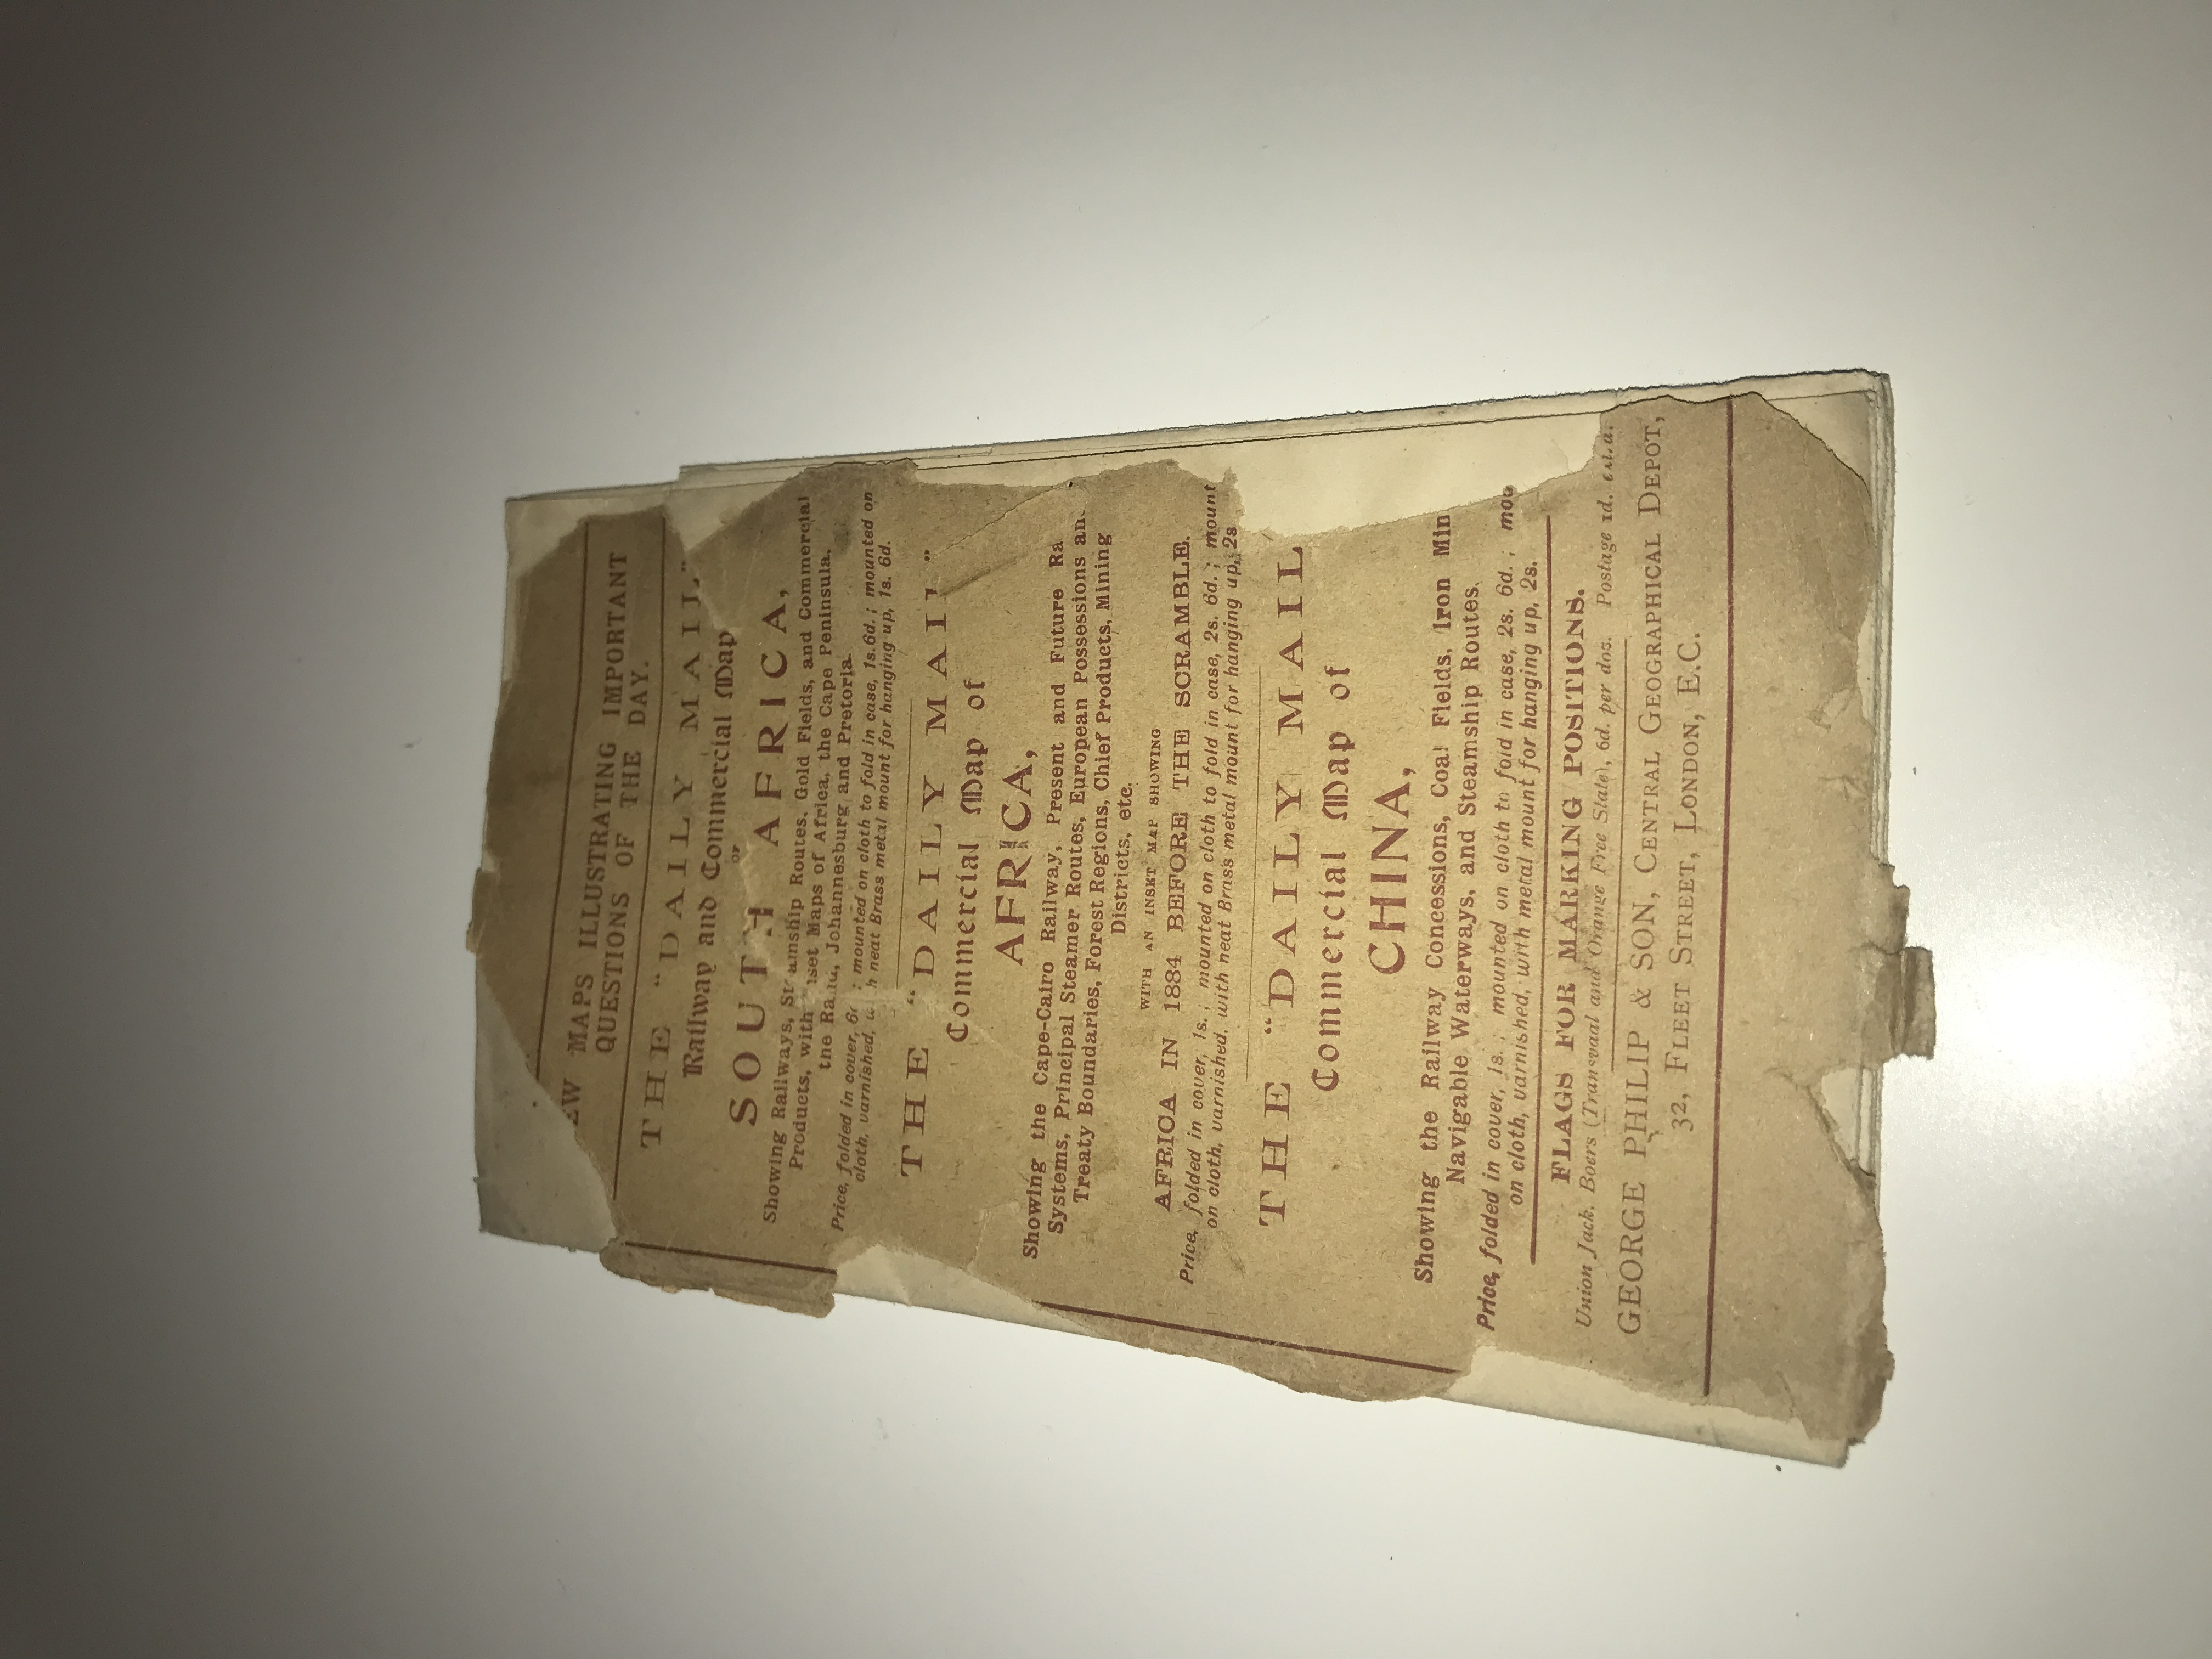 MAPS ILLUSTRATING IMPORTANT
QUESTIONS OF THE DAY.
THE "DAILY MAIL"
Railway and Commercial Map
OF
SOUTH AFRICA,
Showing Railways, Routes, Gold Fields, and Commercial
Products, with Maps of Africa, the Cape Peninsula,
the Johannesburg and Pretoria.
Price, folded in cover, mounted on cloth to fold in case, 1s.6d.; mounted on
cloth, varnished, neat Brass metal mount for hanging up, 1s. 6d.
THE "DAILY MAIL"
Commercial Map of
AFRICA,
Showing the Cape-Cairo Railway, Present and Future
Systems, Principal Steamer Routes, European Possessions
Treaty Boundaries, Forest Regions, Chief Products, Mining
Districts, etc.
WITH AN INSET MAP SHOWING
AFRICA IN 1884 BEFORE THE SCRAMBLE.
Price, folded in cover, 1s.; mounted on cloth to fold in case, 2s. 6d.; mount
on cloth, varnished, with neat Brass metal mount for hanging up, 2s
THE "DAILY MAIL
Commercial Map of
CHINA,
Showing the Railway Concessions, Coal Fields, Iron Min
Navigable Waterways, and Steamship Routes.
Price, folded in cover, 1s.; mounted on cloth to fold in case, 2s. 6d.;
on cloth, varnished, with metal mount for hanging up, 2s.
FLAGS FOR MARKING POSITIONS.
Union Jack, Boers (Transvaal and Orange Free State), 6d. per doz. Postage 1d. extra.
GEORGE PHILIP & SON, CENTRAL GEOGRAPHICAL DEPOT,
32, FLEET STREET, LONDON, E.C.